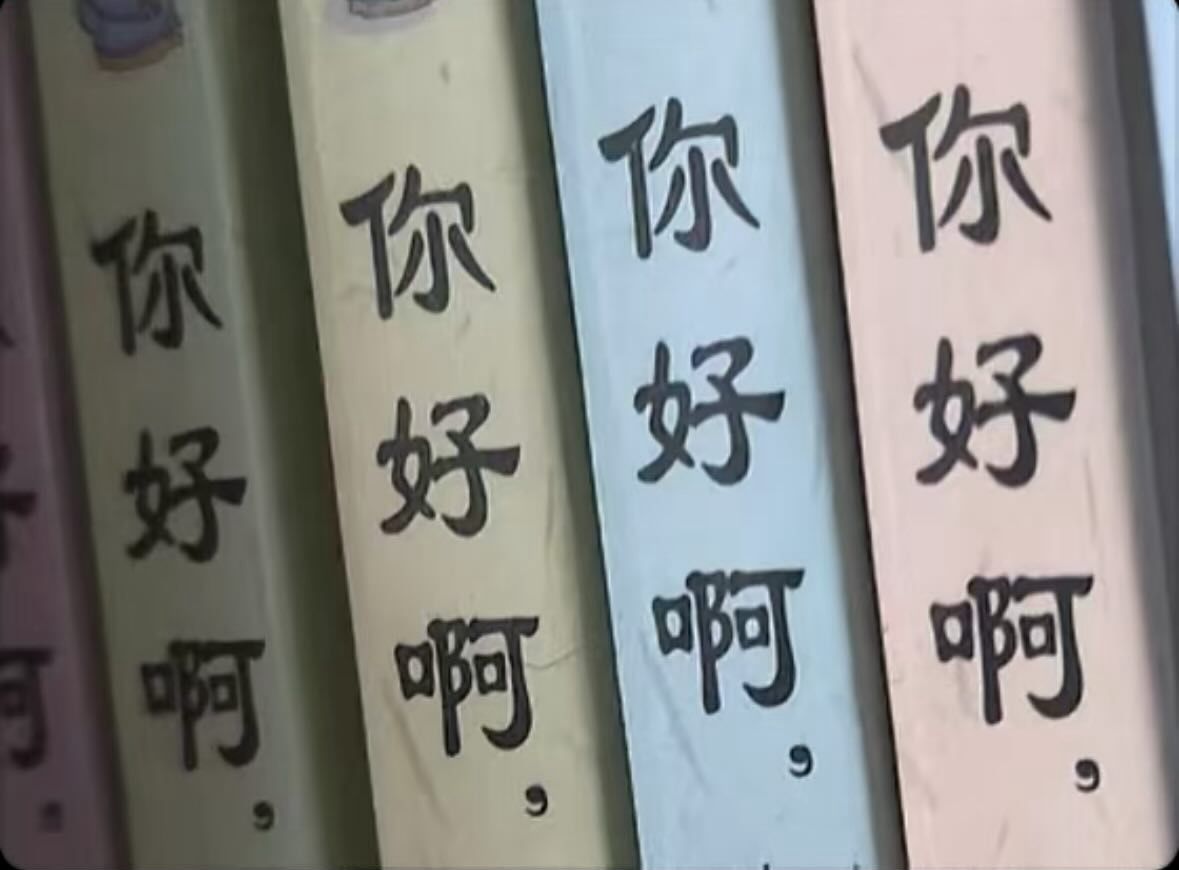 你好啊，
你好啊，
你好啊，
你好啊，